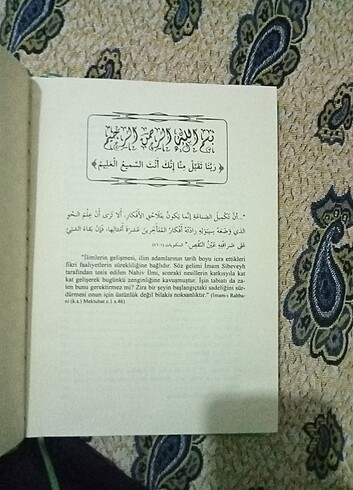 بسم الله الرحمن الرحيم
﴿ رَبَّنَا تَقَبَّلْ مِنَّا إِنَّكَ أَنْتَ السَّمِيعُ الْعَلِيمُ ﴾
"..أنّ تكميل الصناعة إنما يكون بتلاحق الأفكار، ألا ترى أن علم النحو
الذي وضعه سيبويه زادته أفكار المتأخرين عشرة أمثالها، فإن بقاء الشيئ
على صرافته عين النقص" المكتوبات
"İlimlerin gelişmesi, ilim adamlarının tarih boyu icra ettikleri
fikri faaliyetlerin sürekliliğine bağlıdır. Söz gelimi İmam Sibeveyh
tarafından tesis edilen Nahiv İlmi, sonraki nesillerin katkısıyla kat
kat gelişerek bugünkü zenginliğine kavuşmuştur. İşin tabiatı da za-
ten bunu gerektirmez mi? Zira bir şeyin başlangıçtaki sadeliğini sür-
dürmesi onun için üstünlük değil bilakis noksanlıktır." (İmam-ı Rabba-
ni (k.s.) Mektubat c.1 s.46)